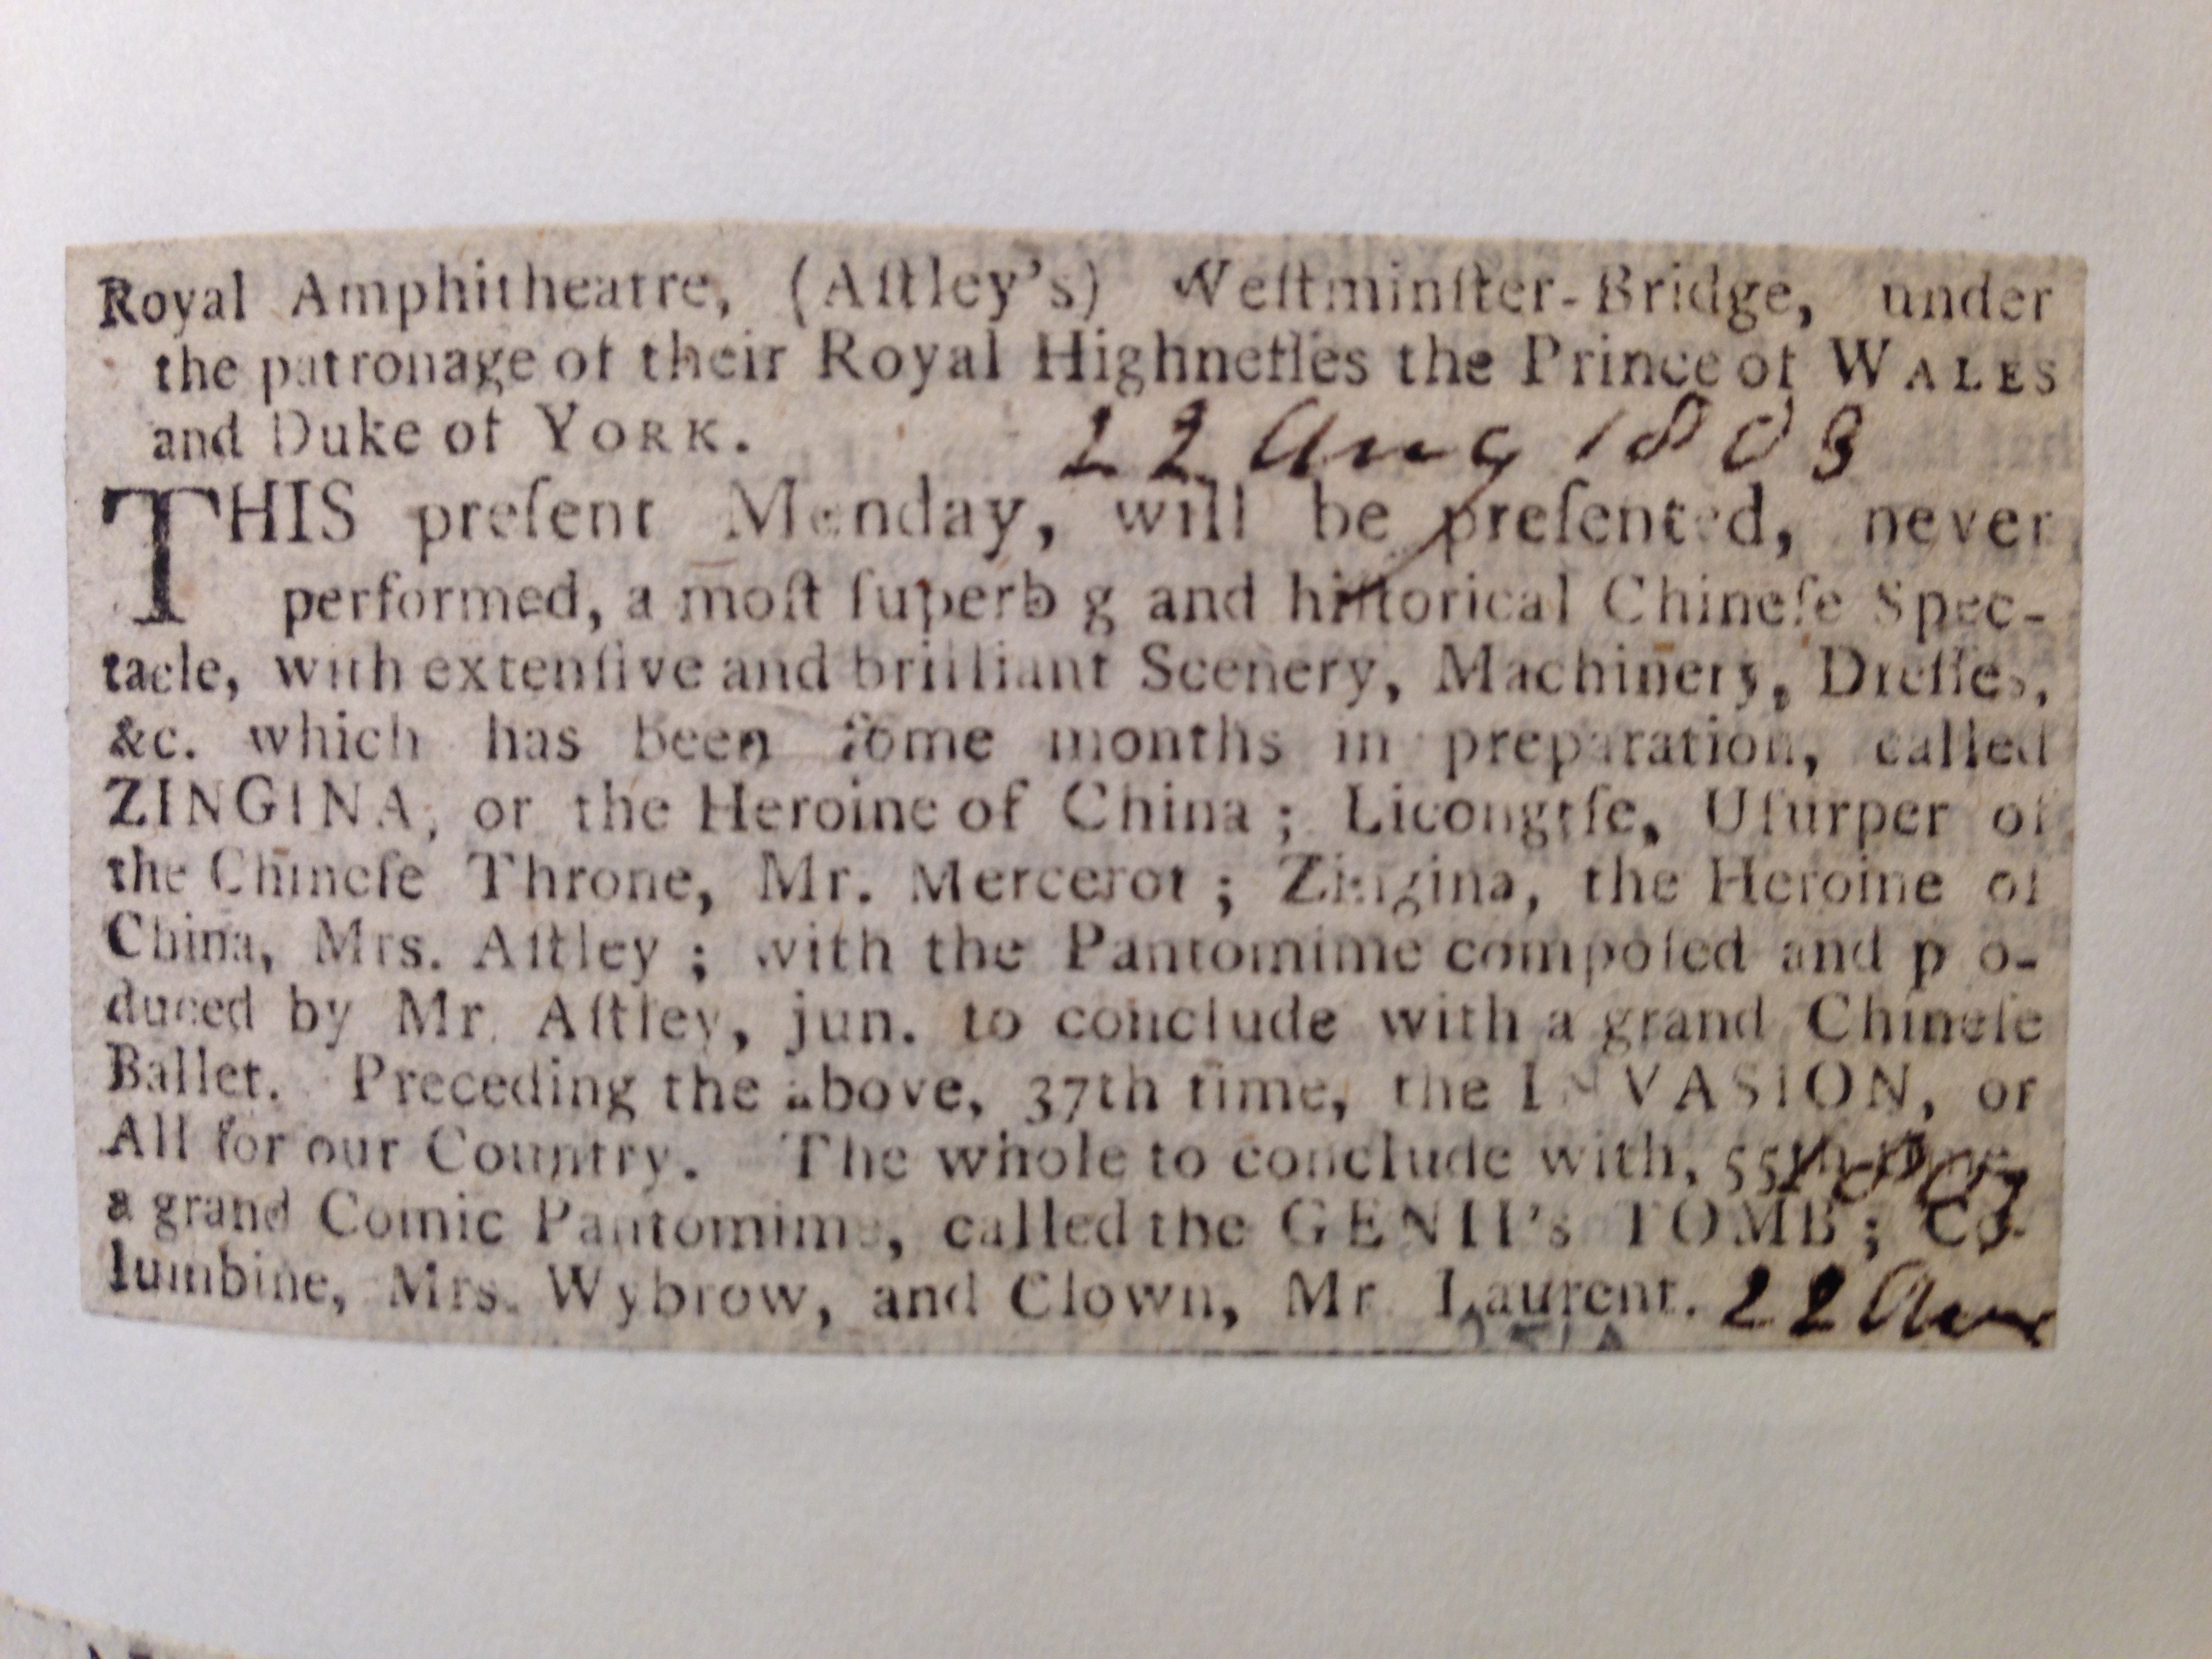 Royal Amphitheatre, (Aſtley's) Weſtminſter-Bridge, under
the patronage of their Royal Highneſſes the Prince of WALES
and Duke of YORK.
22 Aug 1803
THIS preſent Monday, will be preſented, never
performed, a moſt ſuperb g and hiſtorical Chineſe Spec-
tacle, with extenſive and brilliant Scenery, Machinery, Dreſſes,
&c. which has been ſome months in preparation, called
ZINGINA, or the Heroine of China; Licongtſe, Uſurper of
the Chineſe Throne, Mr. Mercerot; Zingina, the Heroine of
China, Mrs. Aſtley; with the Pantomime compoſed and p o-
duced by Mr. Aſtley, jun. to conclude with a grand Chineſe
Ballet. Preceding the above, 37th time, the INVASION, or
All for our Country. The whole to conclude with, 55th time,
a grand Comic Pantomime, called the GENII's TOMB; Co-
lumbine, Mrs. Wybrow, and Clown, Mr. Laurent.
22 Aug
1803